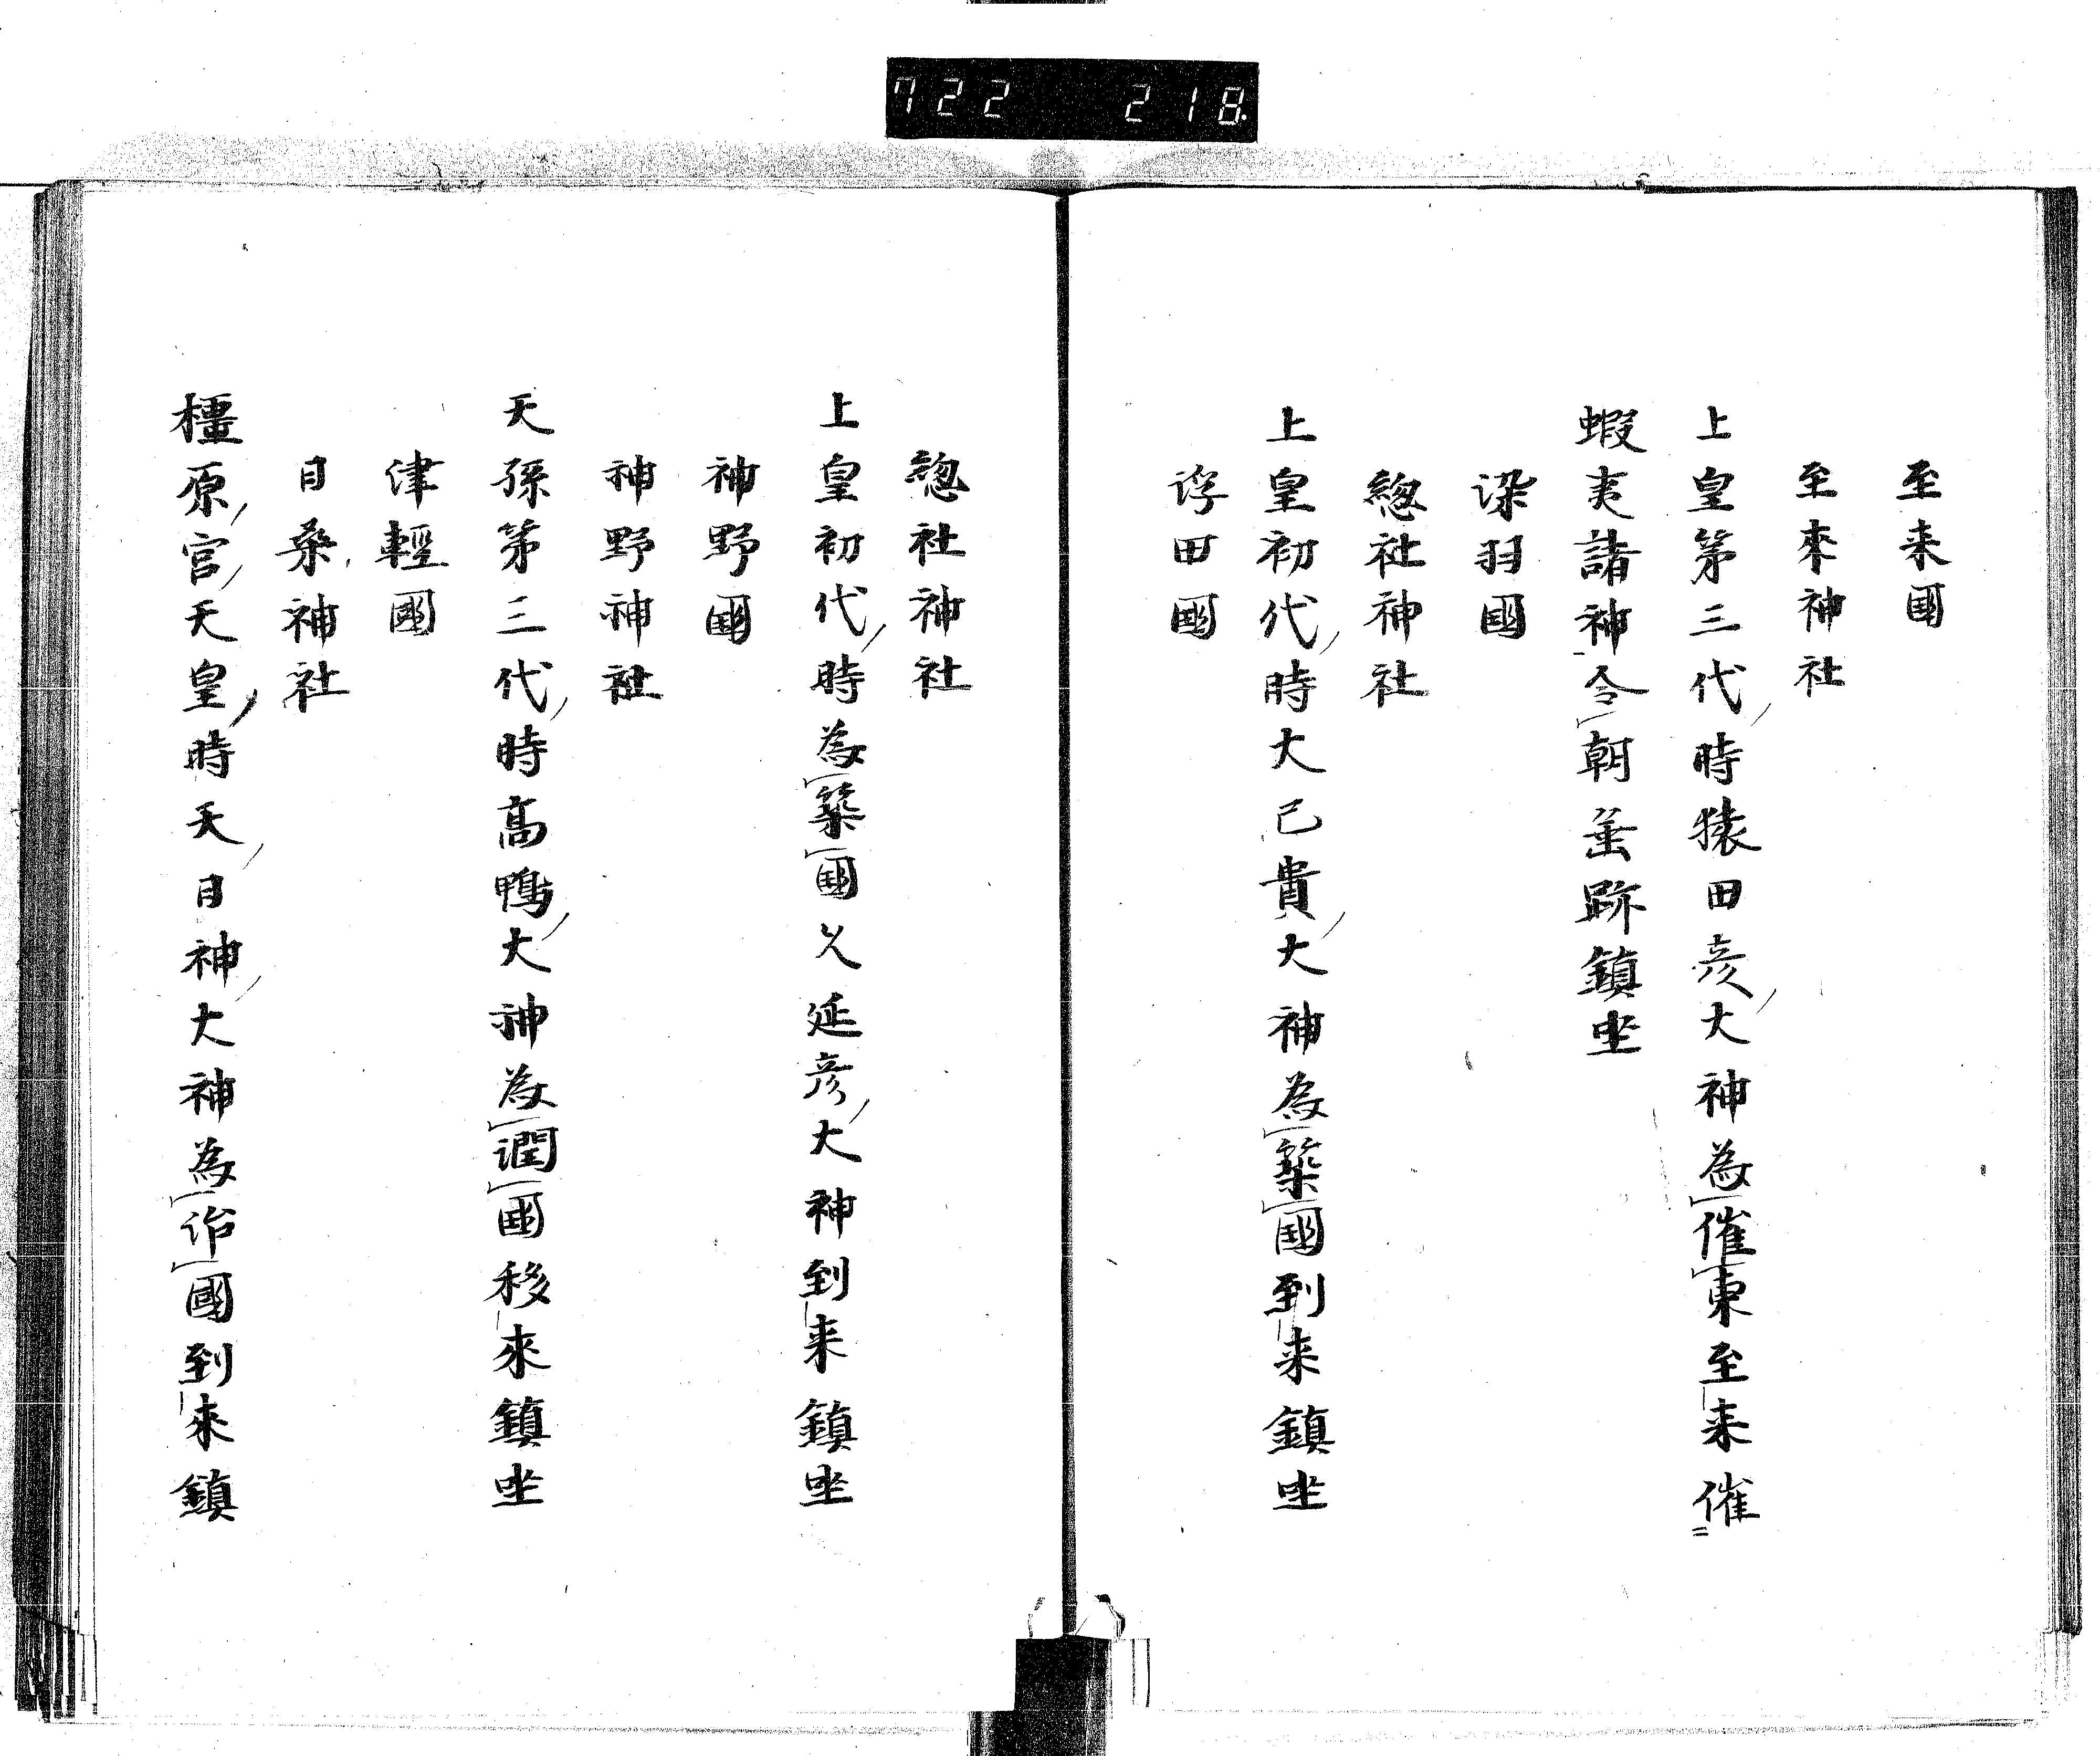 722 218.
至来國
至來神社
上皇第三代時猿田彦大神為催東至来催
蝦夷諸神令朝垂跡鎮坐
染羽國
総社神社
上皇初代時大己貴大神為築國到来鎮坐
浮田國
総社神社
上皇初代時為築國久延彦大神到来鎮坐
神野國
神野神社
天孫第三代時高鴨大神為潤國移來鎮坐
津輕國
日桑神社
橿原宮天皇時天日神大神為治國到來鎮